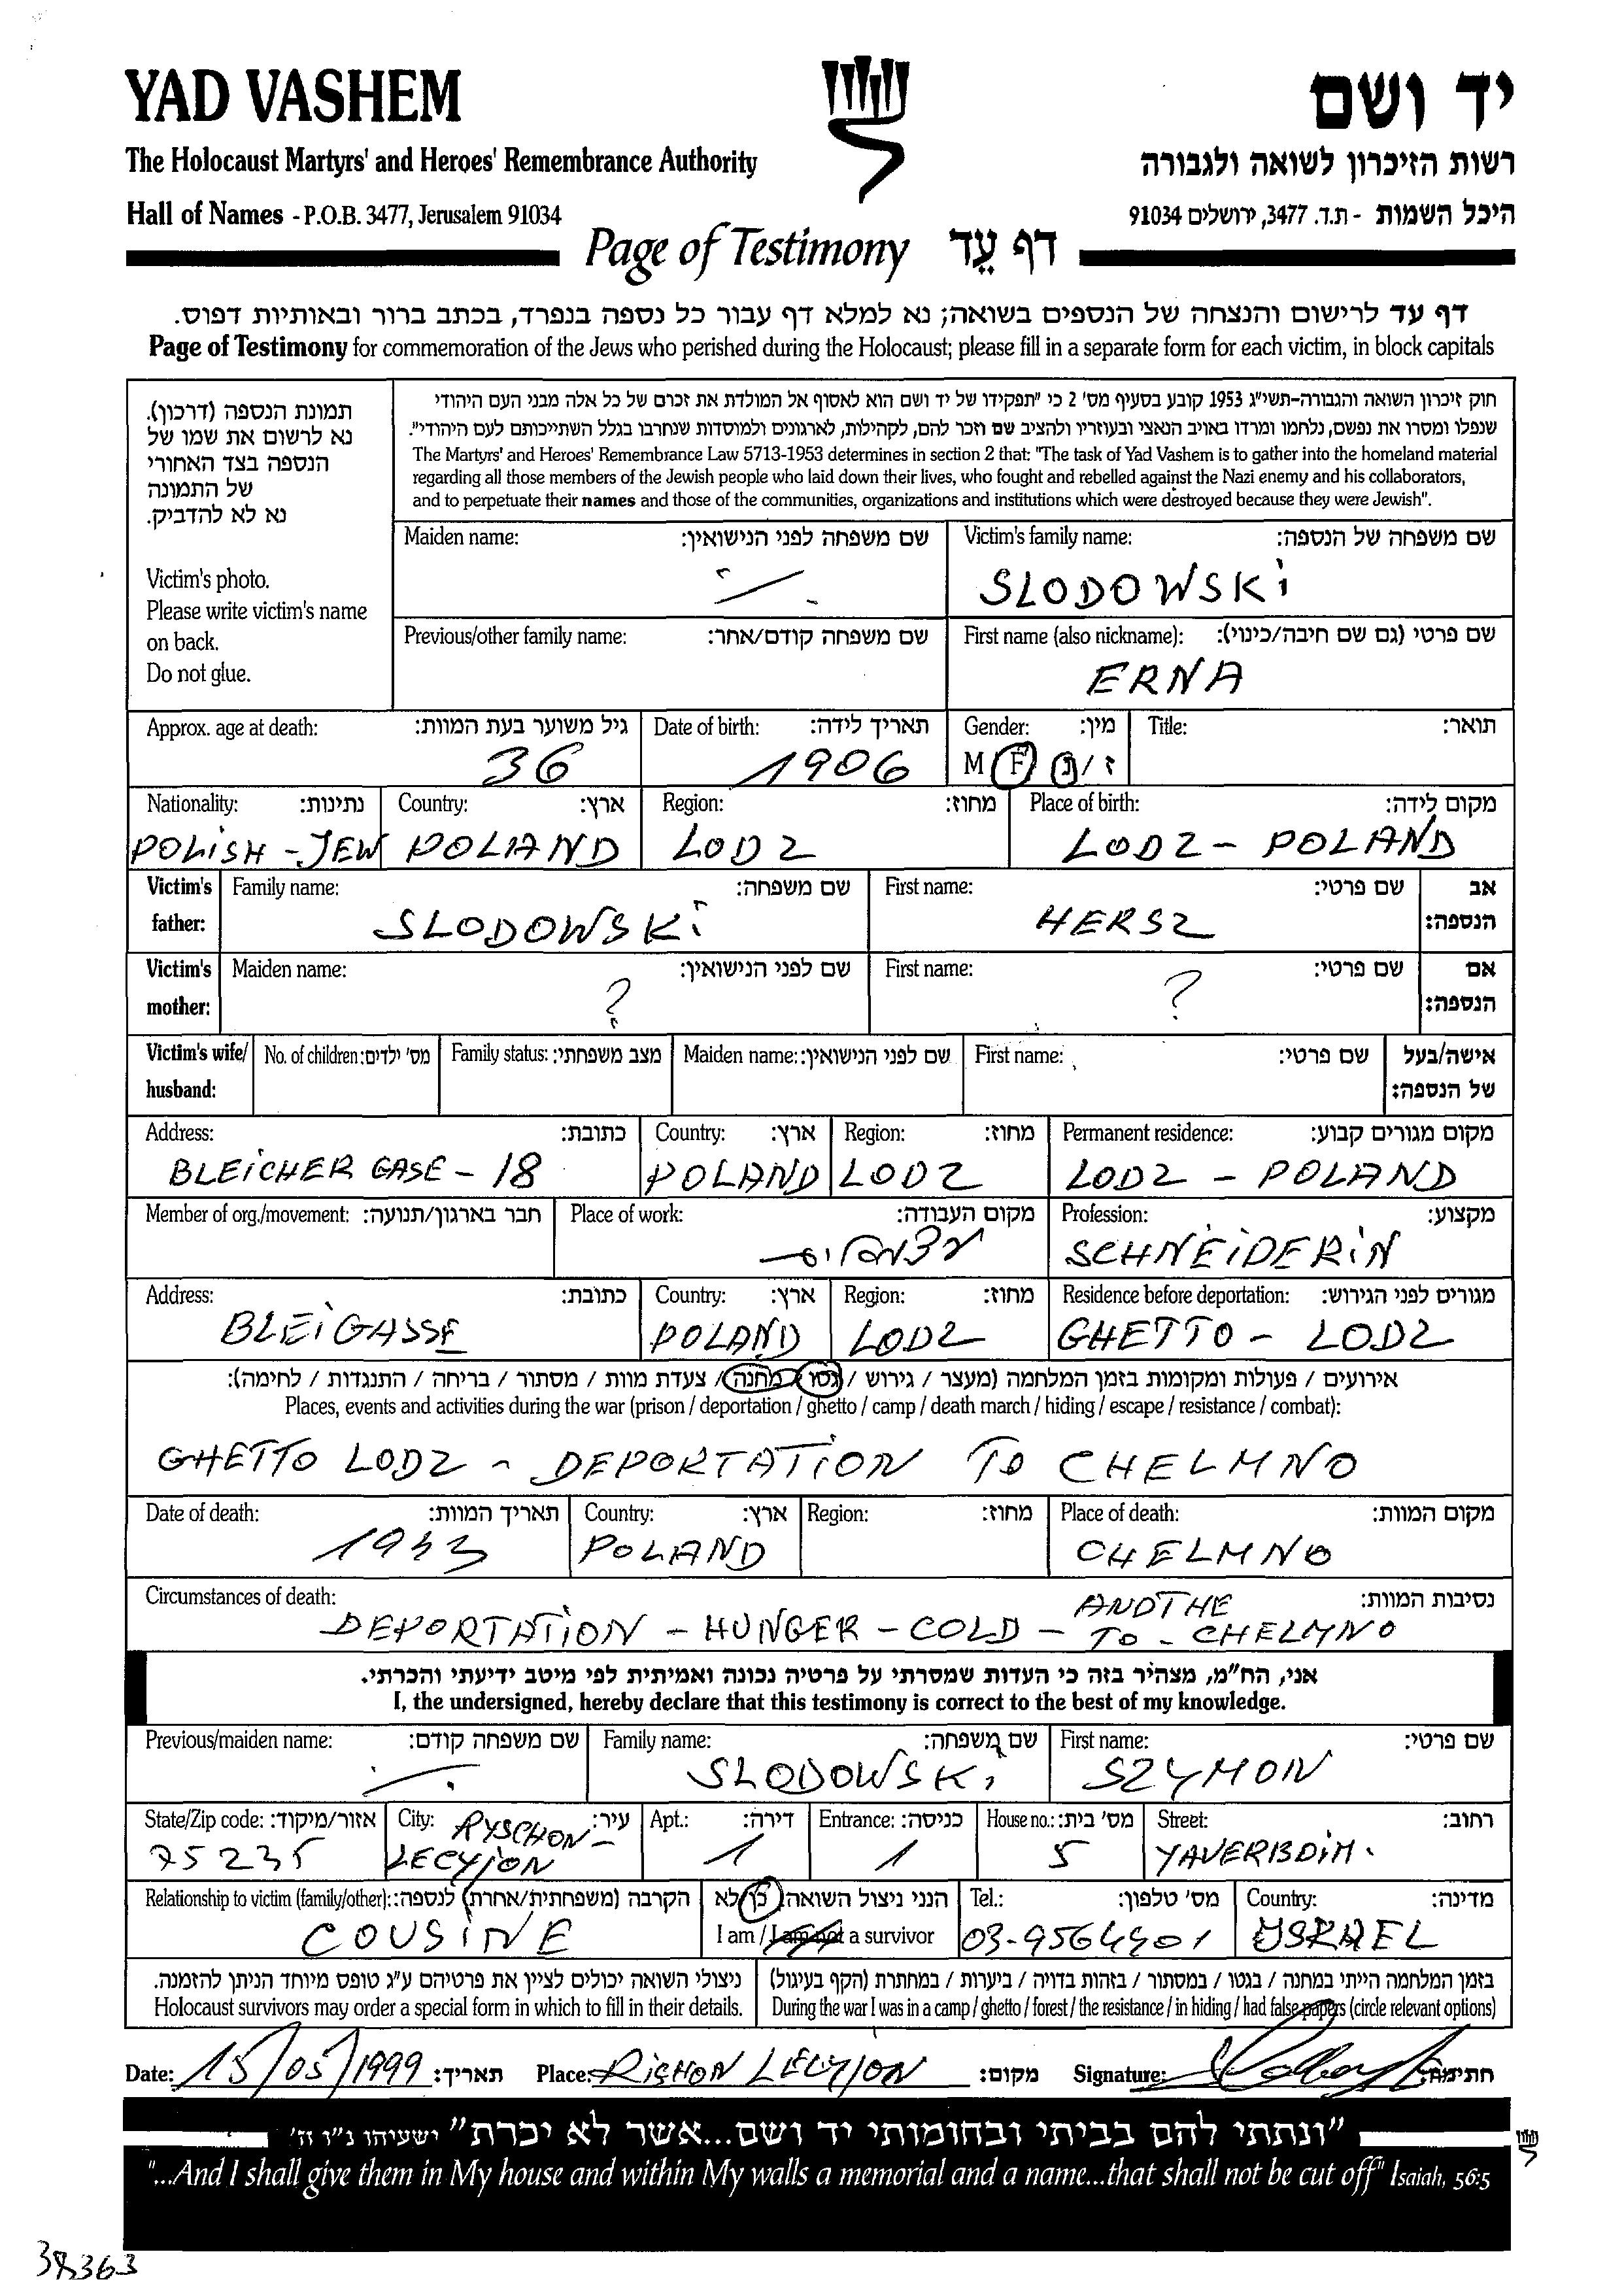 YAD VASHEM
יד ושם
The Holocaust Martyrs' and Heroes' Remembrance Authority
רשות הזיכרון לשואה ולגבורה
Hall of Names - P.O.B. 3477, Jerusalem 91034
היכל השמות - ת.ד. 3477, ירושלים 91034
Page of Testimony דף עֵד
דף עד לרישום והנצחה של הנספים בשואה; נא למלא דף עבור כל נספה בנפרד, בכתב ברור ובאותיות דפוס.
Page of Testimony for commemoration of the Jews who perished during the Holocaust; please fill in a separate form for each victim, in block capitals
תמונת הנספה (דרכון).
נא לרשום את שמו של
הנספה בצד האחורי
של התמונה
נא לא להדביק.
Victim's photo.
Please write victim's name
on back.
Do not glue.
חוק זיכרון השואה והגבורה-תשי"ג 1953 קובע בסעיף מס' 2 כי "תפקידו של יד ושם הוא לאסוף אל המולדת את זכרם של כל אלה מבני העם היהודי
שנפלו ומסרו את נפשם, נלחמו ומרדו באויב הנאצי ובעוזריו ולהציב שם וזכר להם, לקהילות, לארגונים ולמוסדות שנחרבו בגלל השתייכותם לעם היהודי".
The Martyrs' and Heroes' Remembrance Law 5713-1953 determines in section 2 that: "The task of Yad Vashem is to gather into the homeland material
regarding all those members of the Jewish people who laid down their lives, who fought and rebelled against the Nazi enemy and his collaborators,
and to perpetuate their names and those of the communities, organizations and institutions which were destroyed because they were Jewish".
Maiden name: שם משפחה לפני הנישואין:
Victim's family name: שם משפחה של הנספה:
SLODOWSKI
Previous/other family name: שם משפחה קודם/אחר:
First name (also nickname): שם פרטי (גם שם חיבה/כינוי):
ERNA
Approx. age at death: גיל משוער בעת המוות:
36
Date of birth: תאריך לידה:
1906
Gender: מין:
M F ז / נ
Title: תואר:
Nationality: נתינות:
POLISH - JEW
Country: ארץ:
POLAND
Region: מחוז:
LODZ
Place of birth: מקום לידה:
LODZ - POLAND
Victim's father:
Family name: שם משפחה:
SLODOWSKI
First name: שם פרטי:
HERSZ
אב הנספה:
Victim's mother:
Maiden name: שם לפני הנישואין:
?
First name: שם פרטי:
?
אם הנספה:
Victim's wife/ husband:
No. of children: מס' ילדים:
Family status: מצב משפחתי:
Maiden name: שם לפני הנישואין:
First name: שם פרטי:
אישה/בעל של הנספה:
Address: כתובת:
BLEICHER GASE - 18
Country: ארץ:
POLAND
Region: מחוז:
LODZ
Permanent residence: מקום מגורים קבוע:
LODZ - POLAND
Member of org./movement: חבר בארגון/תנועה:
Place of work: מקום העבודה:
Profession: מקצוע:
SCHNEIDERIN
Address: כתובת:
BLEIGASSE
Country: ארץ:
POLAND
Region: מחוז:
LODZ
Residence before deportation: מגורים לפני הגירוש:
GHETTO - LODZ
אירועים / פעולות ומקומות בזמן המלחמה (מעצר / גירוש / גטו / מחנה / צעדת מוות / מסתור / בריחה / התנגדות / לחימה):
Places, events and activities during the war (prison / deportation / ghetto / camp / death march / hiding / escape / resistance / combat):
GHETTO LODZ - DEPORTATION TO CHELMNO
Date of death: תאריך המוות:
1943
Country: ארץ:
POLAND
Region: מחוז:
Place of death: מקום המוות:
CHELMNO
Circumstances of death: נסיבות המוות:
DEPORTATION - HUNGER - COLD - ANDTHE
TO - CHELMNO
אני, הח"מ, מצהיר בזה כי העדות שמסרתי על פרטיה נכונה ואמיתית לפי מיטב ידיעתי והכרתי.
I, the undersigned, hereby declare that this testimony is correct to the best of my knowledge.
Previous/maiden name: שם משפחה קודם:
Family name: שם משפחה:
SLODOWSKI
First name: שם פרטי:
SZYMON
State/Zip code: אזור/מיקוד:
75235
City: עיר:
RYSCHON-
LECYJON
Apt.: דירה:
1
Entrance: כניסה:
1
House no.: מס' בית:
5
Street: רחוב:
YAVERBDIM.
Relationship to victim (family/other): הקרבה (משפחתית/אחרת) לנספה:
COUSINE
הנני ניצול השואה: כן לא
I am / I am not a survivor
Tel.: מס' טלפון:
03-9564901
Country: מדינה:
YSRAEL
ניצולי השואה יכולים לציין את פרטיהם ע"ג טופס מיוחד הניתן להזמנה.
Holocaust survivors may order a special form in which to fill in their details.
בזמן המלחמה הייתי במחנה / בגטו / במסתור / בזהות בדויה / ביערות / במחתרת (הקף בעיגול)
During the war I was in a camp / ghetto / forest / the resistance / in hiding / had false papers (circle relevant options)
Date: 15/05/1999 תאריך: Place: RISHON LECYJON מקום: Signature: חתימה:
"ונתתי להם בביתי ובחומותי יד ושם...אשר לא יכרת" ישעיהו נ"ו ה'
"...And I shall give them in My house and within My walls a memorial and a name...that shall not be cut off" Isaiah, 56:5